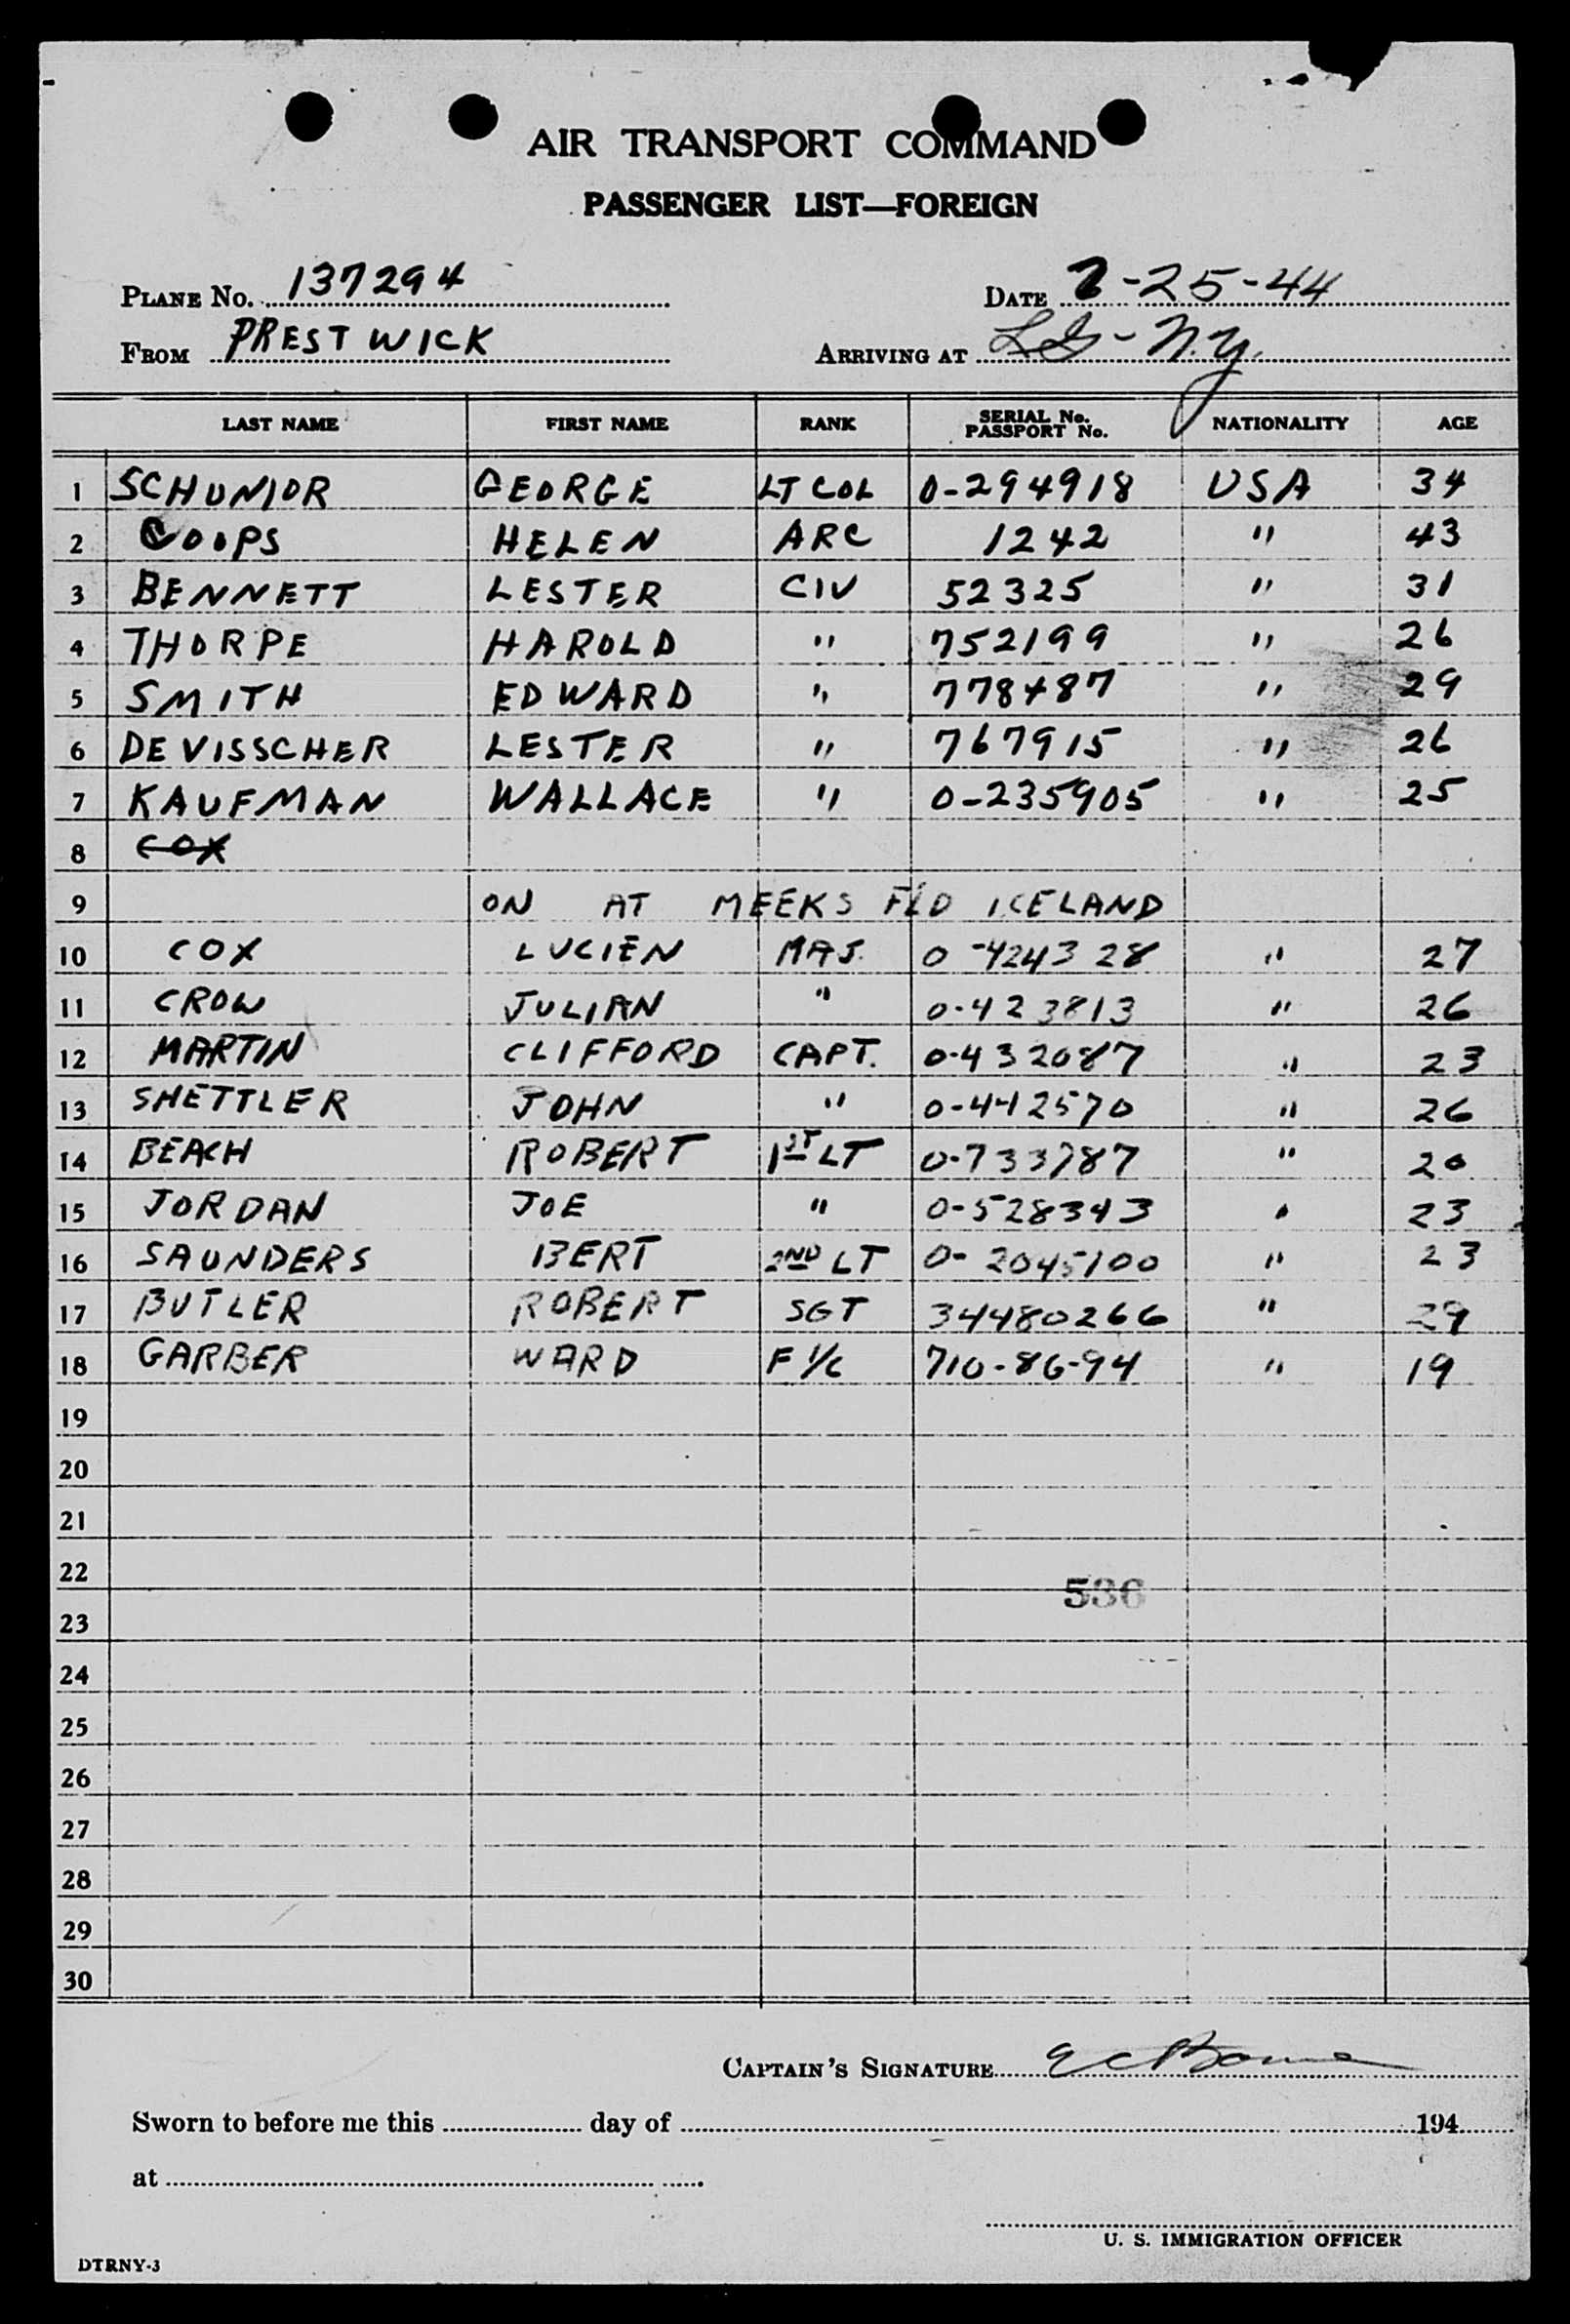 AIR TRANSPORT COMMAND
PASSENGER LIST—FOREIGN
PLANE No. 137294 DATE 2-25-44
FROM PRESTWICK ARRIVING AT LG-N.Y.
LAST NAME FIRST NAME RANK SERIAL No. PASSPORT No. NATIONALITY AGE
1 SCHUNIOR GEORGE LT COL 0-294918 USA 34
2 COOPS HELEN ARC 1242 " 43
3 BENNETT LESTER CIV 52325 " 31
4 THORPE HAROLD " 752199 " 26
5 SMITH EDWARD " 778487 " 29
6 DEVISSCHER LESTER " 767915 " 26
7 KAUFMAN WALLACE " 0-235905 " 25
8 COX
9 ON AT MEEKS FLD ICELAND
10 COX LUCIEN MAJ. 0-424328 " 27
11 CROW JULIAN " 0-423813 " 26
12 MARTIN CLIFFORD CAPT. 0-432087 " 23
13 SHETTLER JOHN " 0-442570 " 26
14 BEACH ROBERT 1ST LT 0-733787 " 20
15 JORDAN JOE " 0-528343 " 23
16 SAUNDERS BERT 2ND LT 0-2045100 " 23
17 BUTLER ROBERT SGT 34480266 " 29
18 GARBER WARD F 1/C 710-86-94 " 19
19
20
21
22
536
23
24
25
26
27
28
29
30
CAPTAIN'S SIGNATURE
Sworn to before me this day of 194
at
U. S. IMMIGRATION OFFICER
DTRNY-3